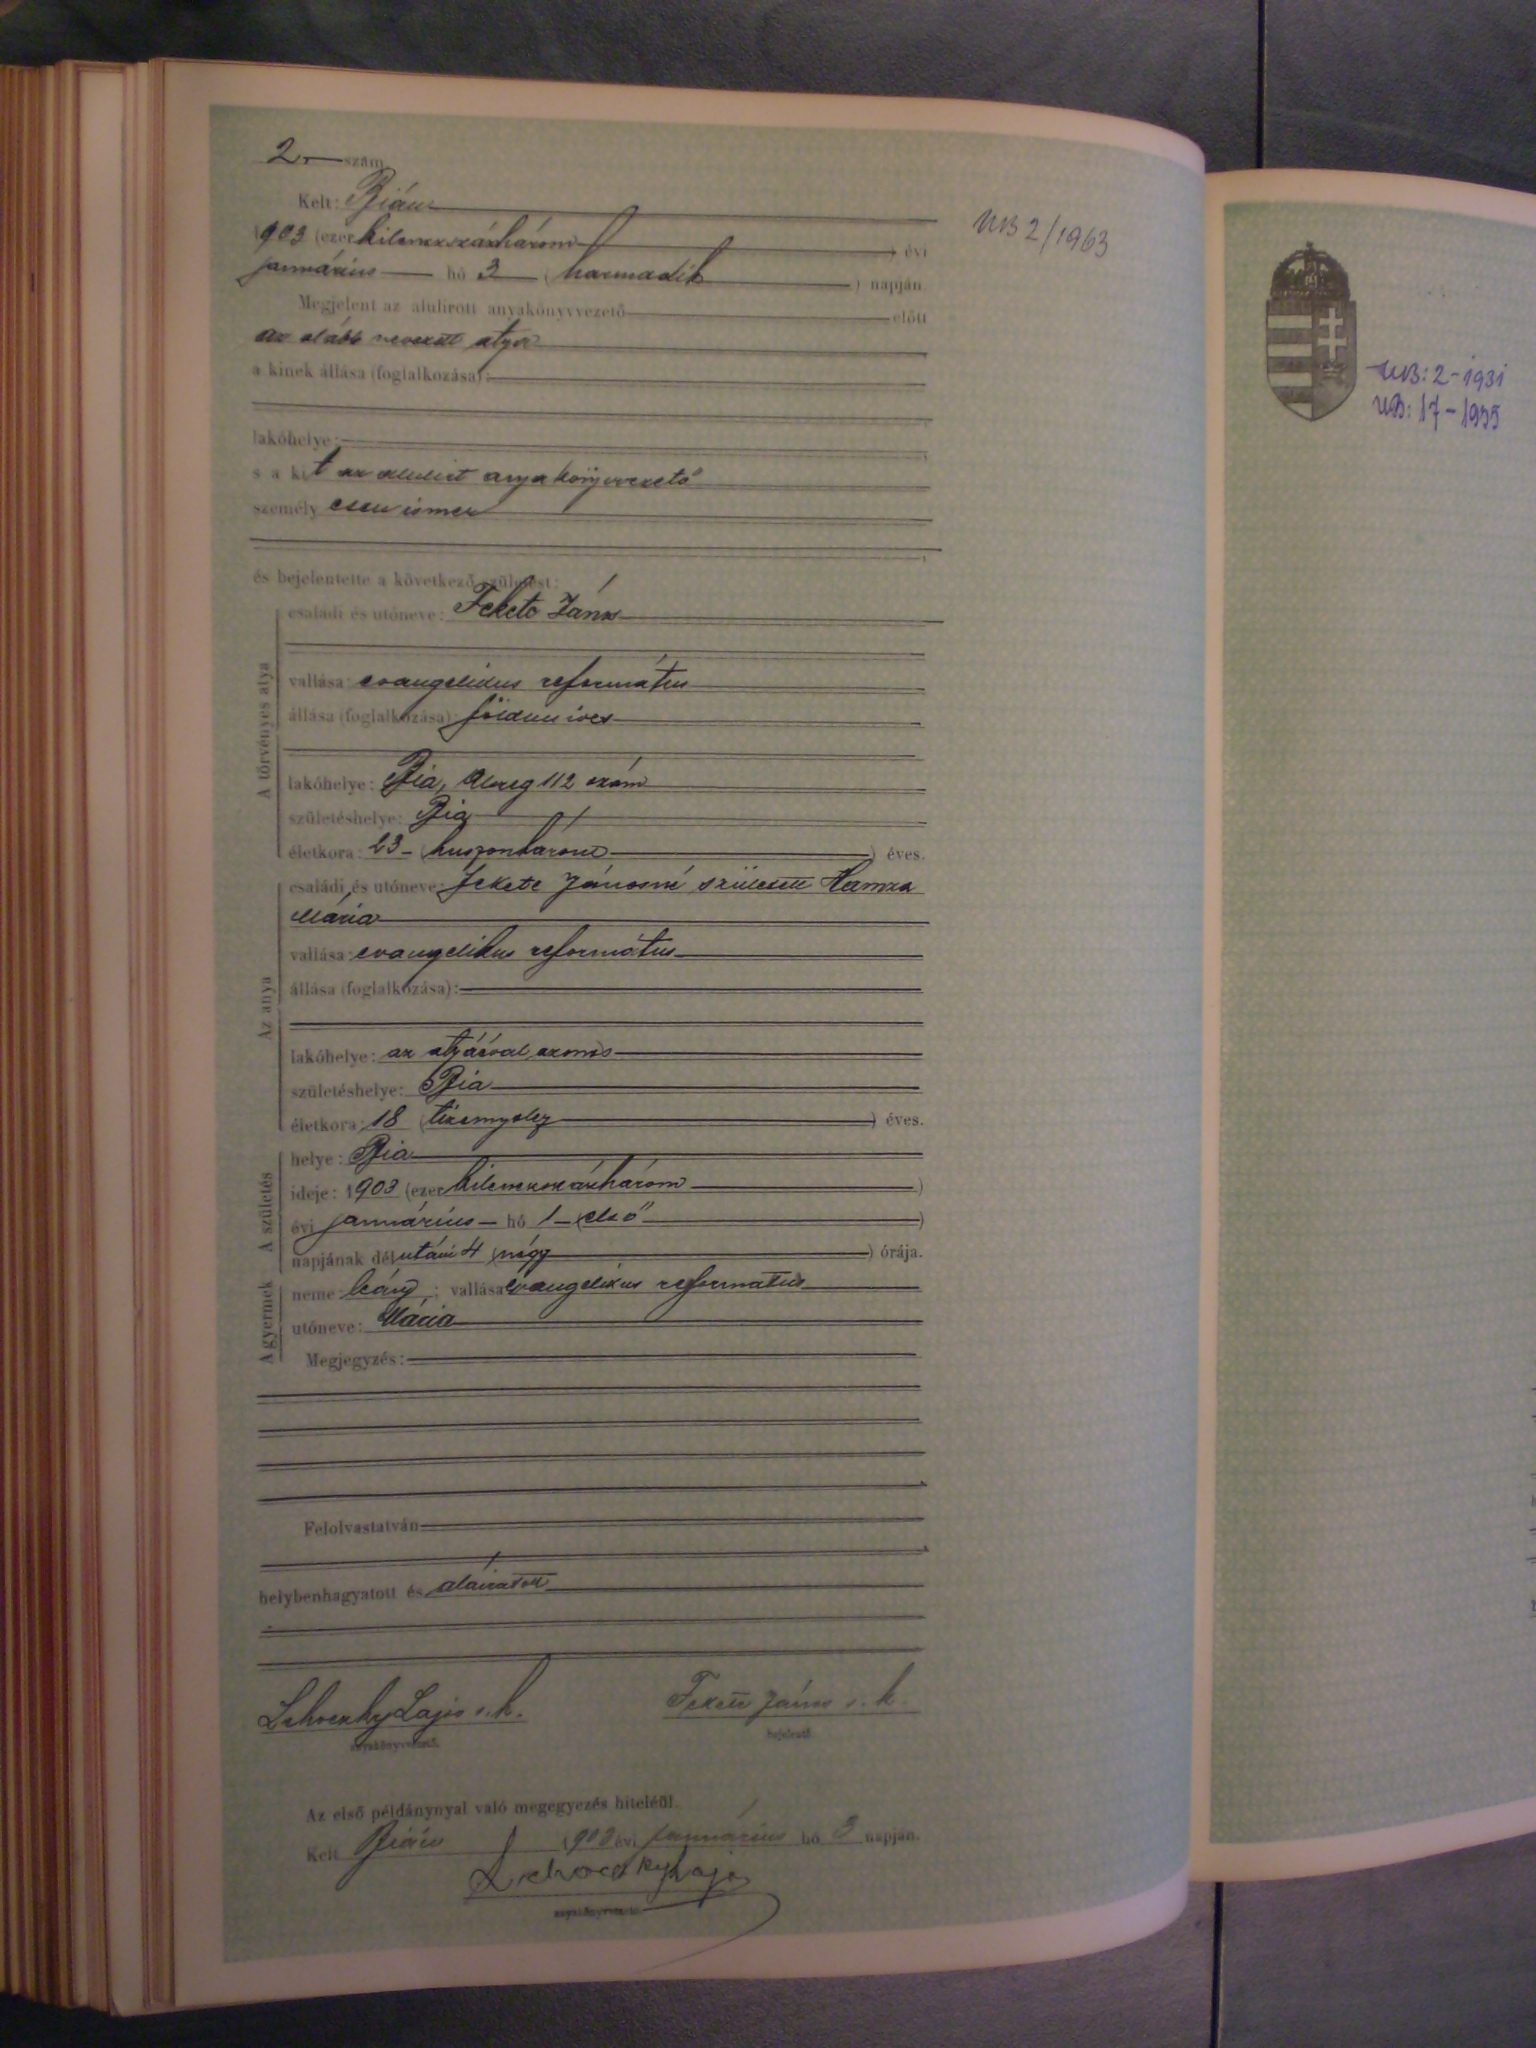 2. szám
Kelt: Bián
1903 (ezer kilenczszázhárom ) évi
januárius hó 3 ( harmadik ) napján
Megjelent az alulirott anyakönyvvezető előtt
az alább nevezett atya
a kinek állása (foglalkozása):
lakóhelye:
s a kit az alulirt anyakönyvvezető
személyesen ismer
és bejelentette a következő születést:
A törvényes atya
családi és utóneve: Fekete János
vallása: evangelikus református
állása (foglalkozása): földmives
lakóhelye: Bia, 112 szám
születéshelye: Bia
életkora: 23 (huszonhárom ) éves.
Az anya
családi és utóneve: Fekete Jánosné született Hamza
Mária
vallása: evangelikus református
állása (foglalkozása):
lakóhelye: az atyáéval azonos
születéshelye: Bia
életkora: 18 (tizennyolcz ) éves.
A születés
helye: Bia
ideje: 1903 (ezer kilenczszázhárom )
évi januárius hó 1 (első )
napjának délutáni 4 (négy ) órája.
A gyermek
neme: leány ; vallása: evangelikus református
utóneve: Mária
Megjegyzés:
Felolvastatván
helybenhagyatott és aláiratott
Lehoczky Lajos s. k.
anyakönyvvezető.
Fekete János s. k.
bejelentő.
Az első példánynyal való megegyezés hiteléül.
Kelt Bián 1903 évi januárius hó 3 napján.
Lehoczky Lajos
anyakönyvvezető
UB 2/1963
UB: 2-1931
UB: 17-1955